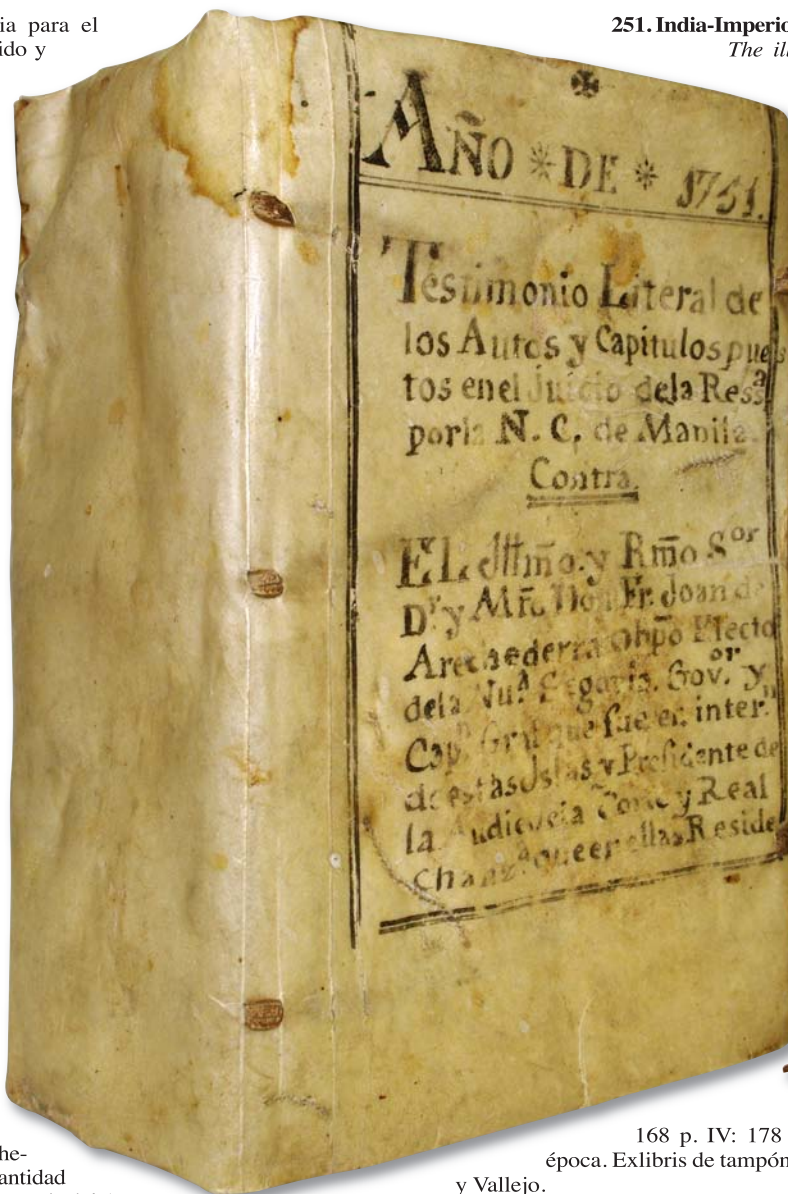 ia para el
ido y
251. India-Imperio
The ill
AÑO * DE * 1751.
Testimonio Literal de
los Autos y Capitulos pues
tos en el Juicio dela Ress.ª
por la N. C. de Manila
Contra.
EL Illmo. y Rmo Sor
Dr. y Mrõ. Don Fr. Joan de
Arechederra Obpõ Electo
dela Nu.ª Segovia. Gov.or y
Cap.n Gral que fue en inter.n
de estas Islas y Presidente de
la Audiencia Corte y Real
Chanz.ª que en ellas Reside
he-
antidad
168 p. IV: 178
época. Exlibris de tampón
y Vallejo.